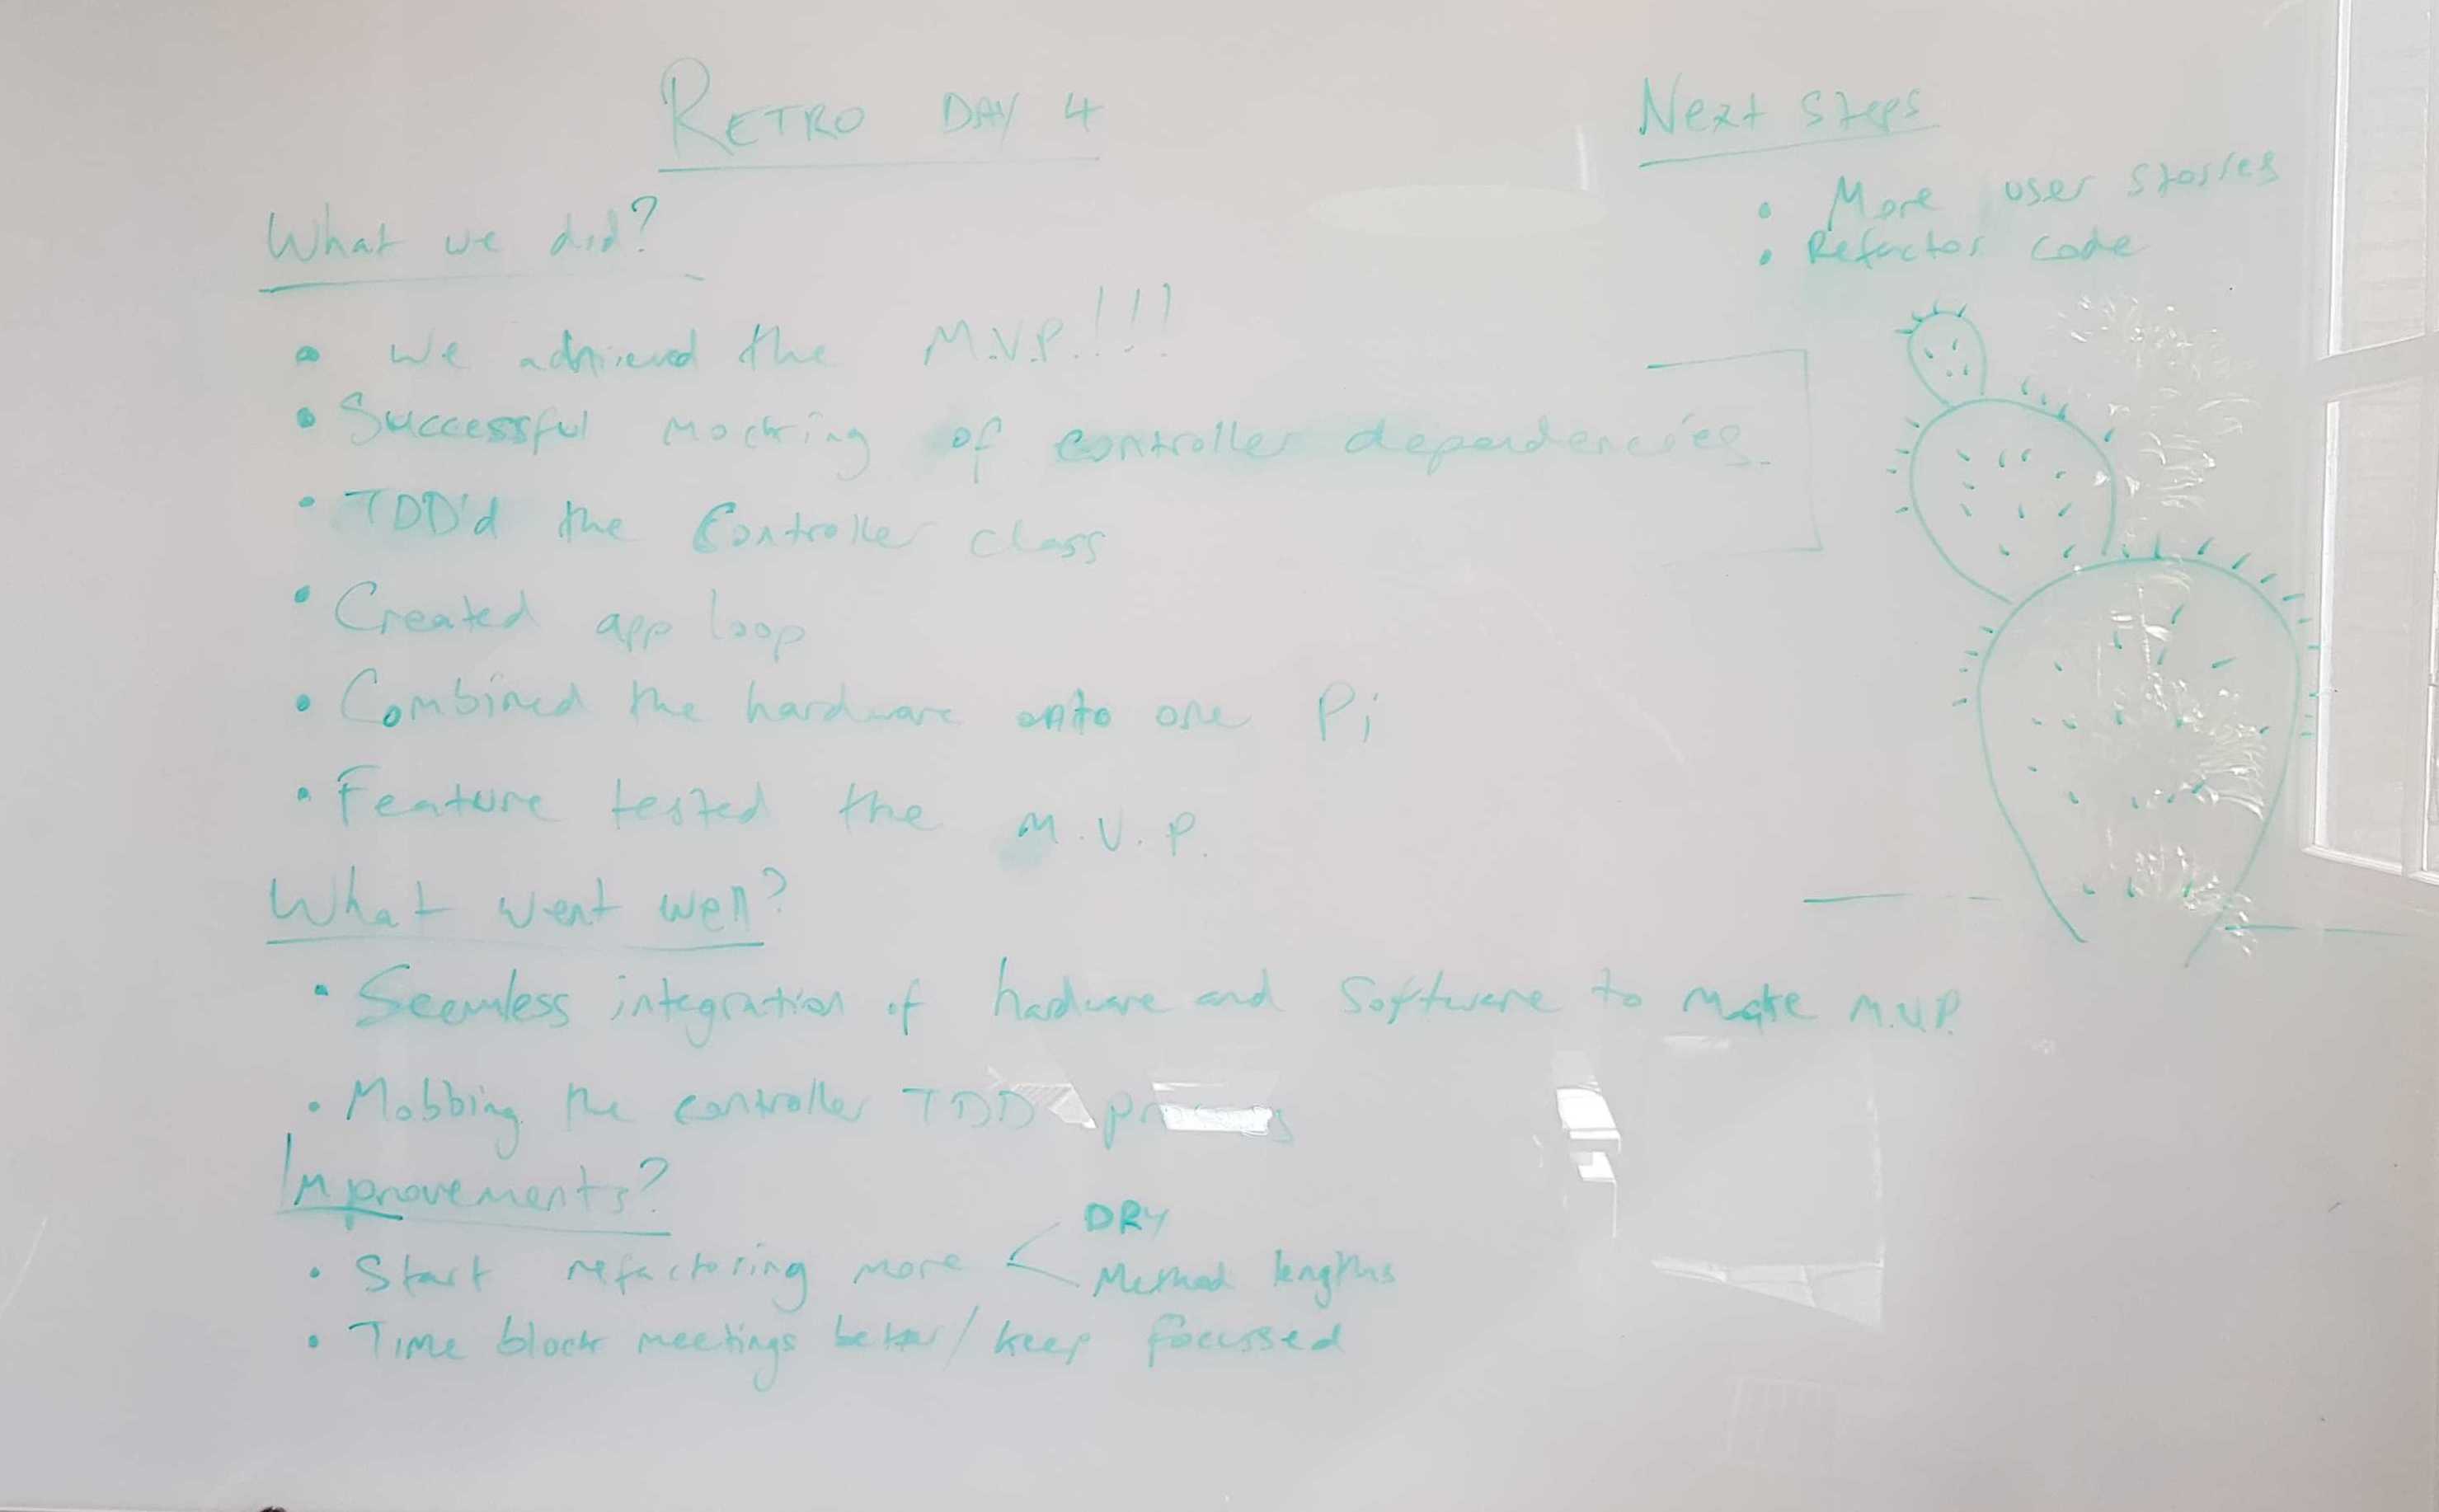 RETRO DAY 4
What we did?
• We achieved the M.V.P.!!!
• Successful mocking of controller dependencies
• TDD'd the Controller class
• Created app loop
• Combined the hardware onto one Pi
• Feature tested the M.V.P.
What went well?
• Seemless integration of hardware and software to make M.V.P.
• Mobbing the controller TDD
Improvements?
• Start refactoring more < DRY
Method lengths
• Time block meetings better / keep focussed
Next steps
• More user stories
• Refactor code